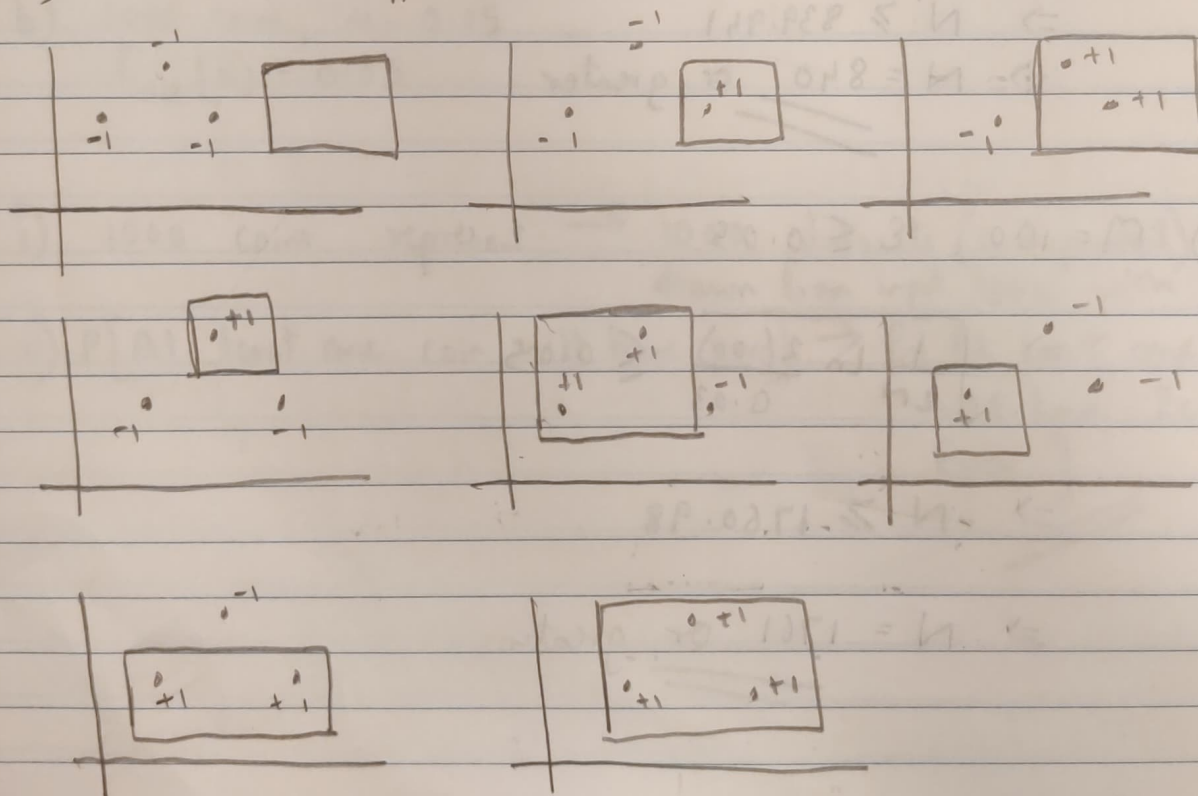 -1
-1 -1
-1
+1
-1
+1
+1
-1
+1
-1 -1
+1
+1
-1
-1
-1
+1
-1
+1 +1
+1
+1 +1